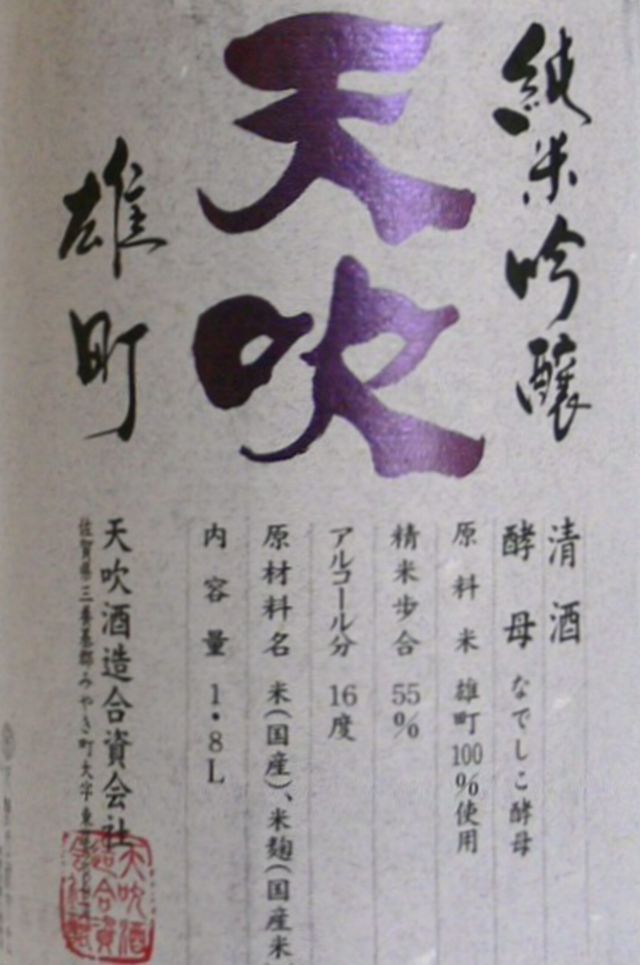 純米吟醸
天吹
雄町
清酒
酵母 なでしこ酵母
原料米 雄町100%使用
精米歩合 55%
アルコール分 16度
原材料名 米(国産)、米麹(国産米
内容量 1.8L
天吹酒造合資会社
佐賀県三養基郡みやき町大字東